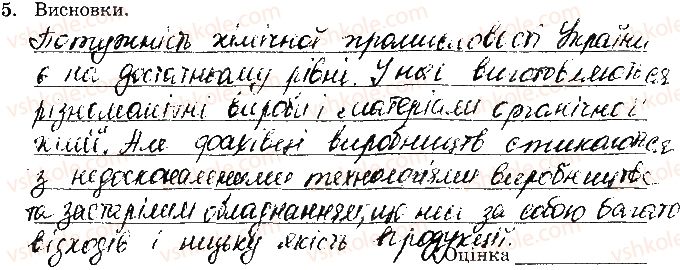 5. Висновки.
Потужність хімічної промисловості України
є на достатньому рівні. У ній виготовляються
різноманітні вироби і матеріали органічної
хімії. Але фахівці виробництв стикаються
з недосконалими технологіями виробництва
та застарілим обладнанням, що несе за собою багато
відходів і низьку якість продукції.
Оцінка